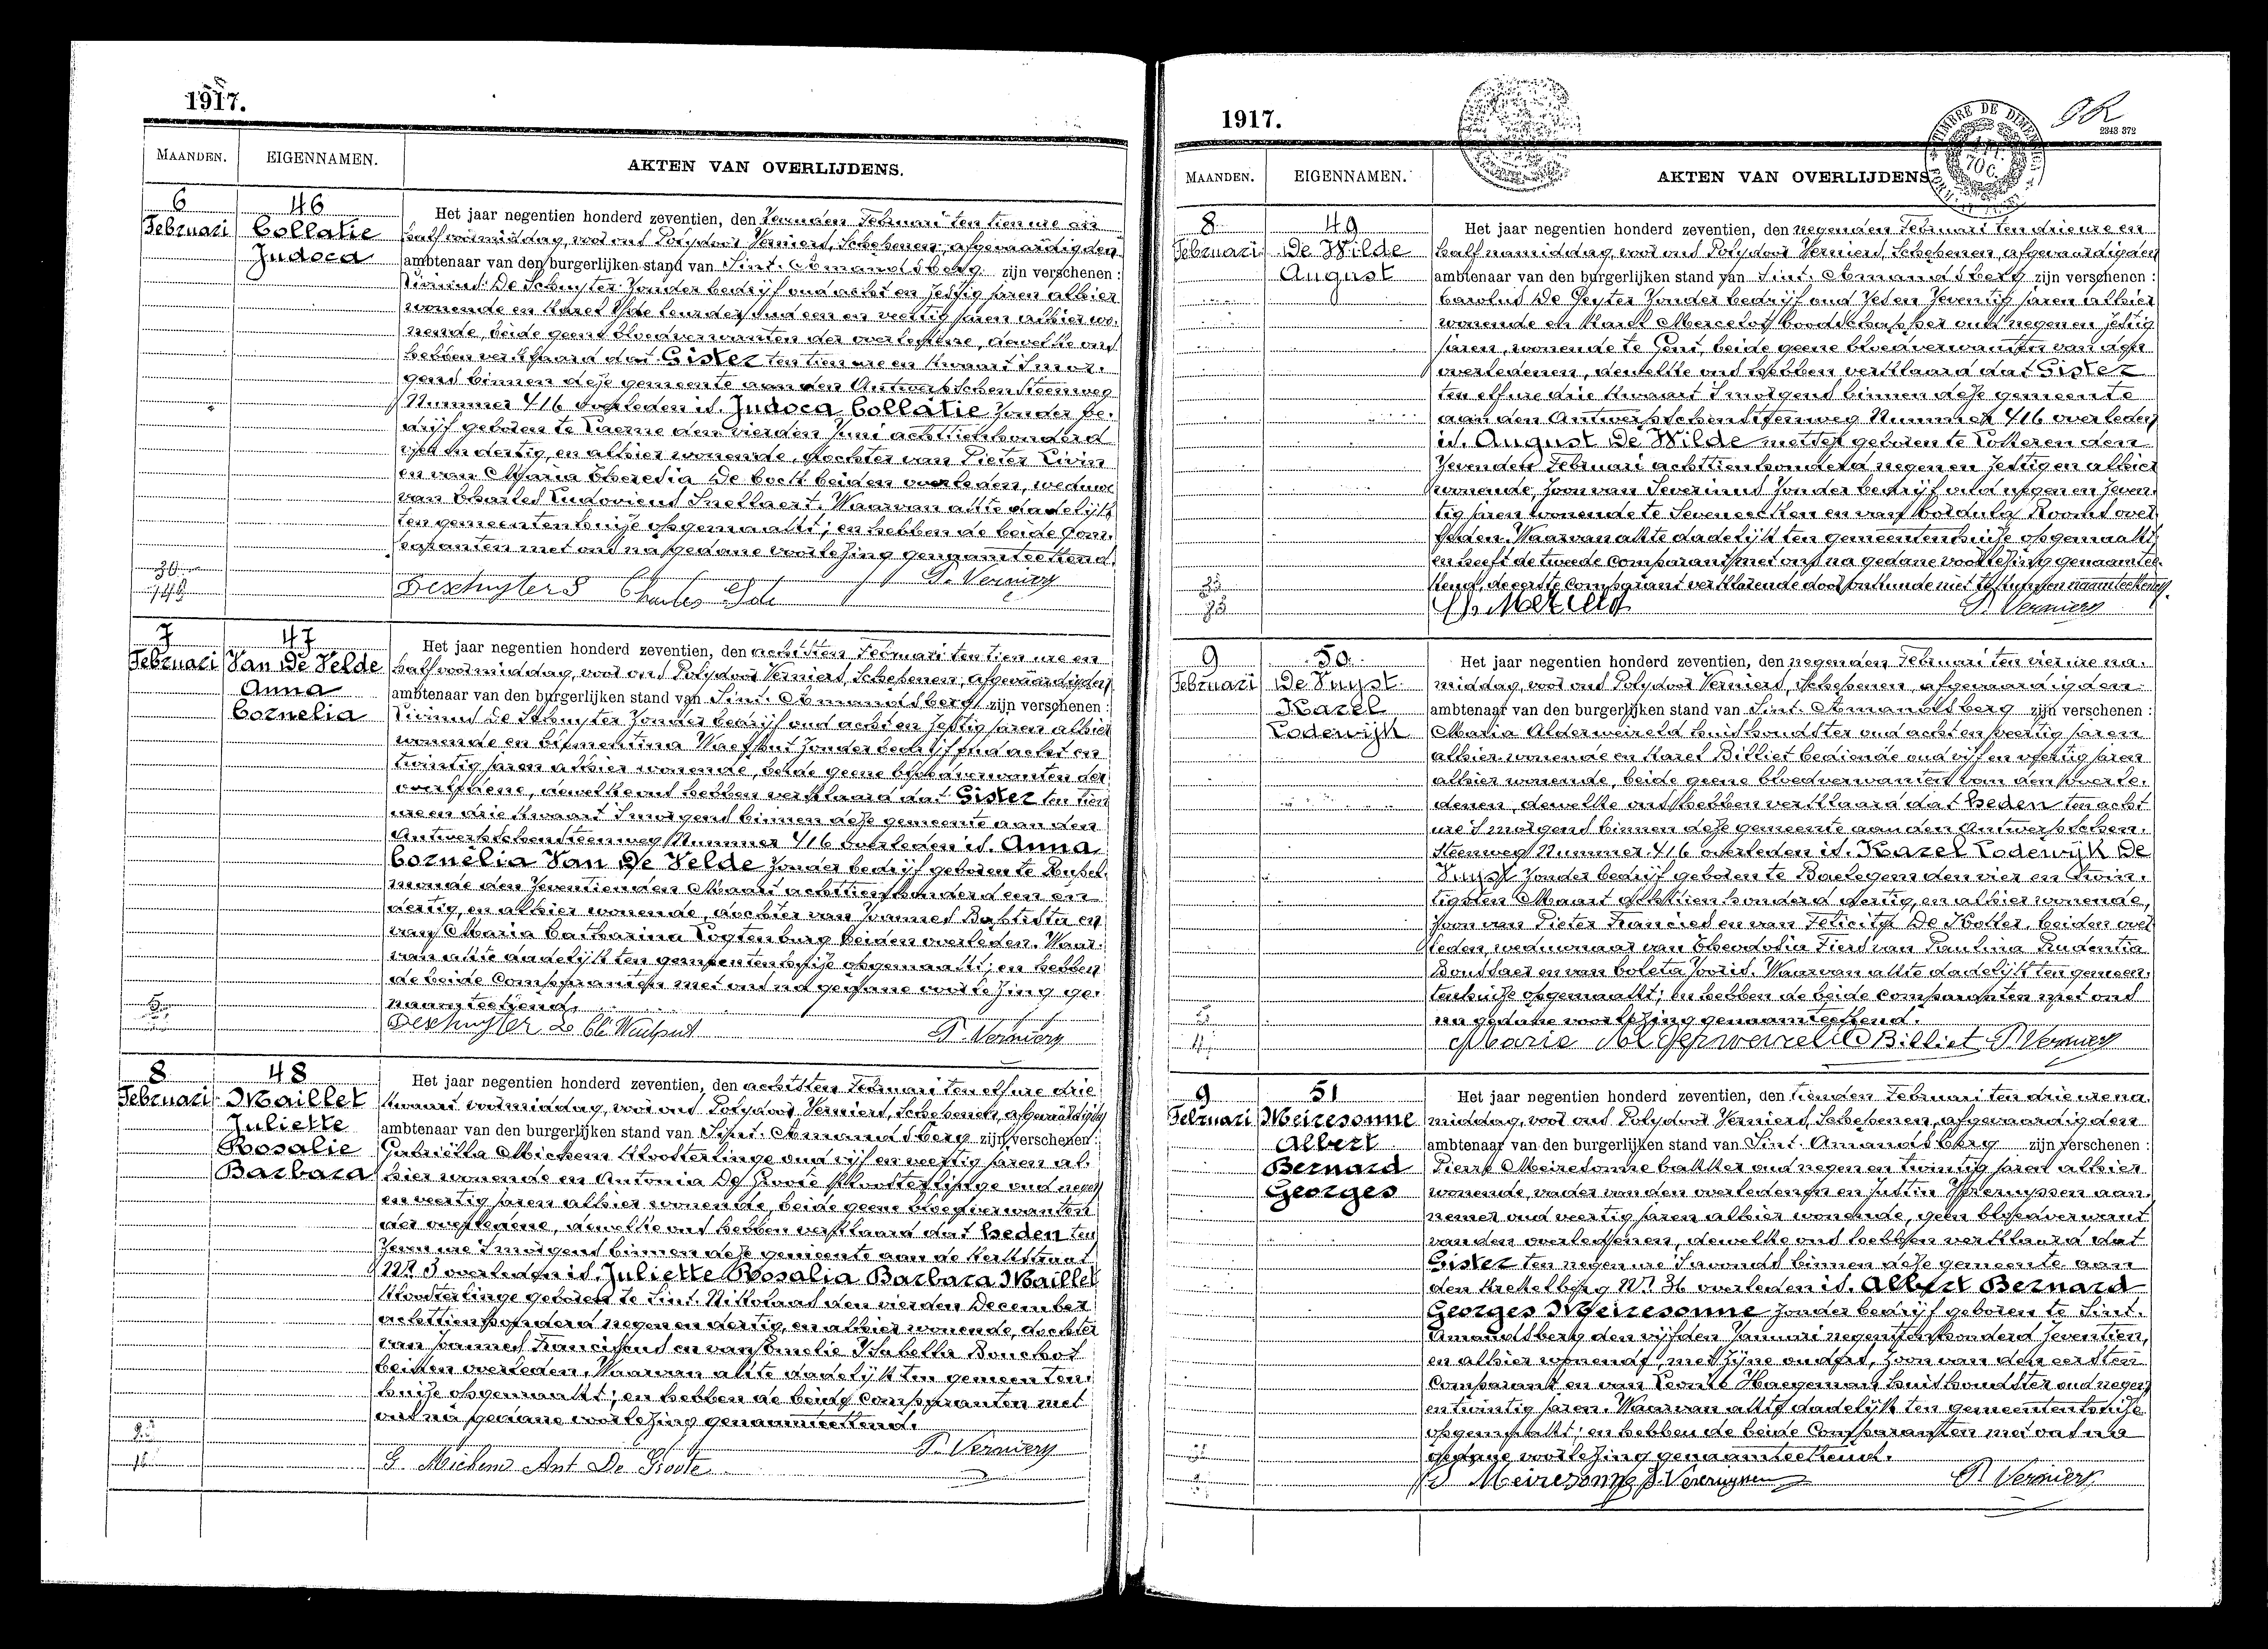 1917.
MAANDEN. EIGENNAMEN. AKTEN VAN OVERLIJDENS.
6 46
Februari Collatie
Judoca
Het jaar negentien honderd zeventien, den zevenden Februari ten tien ure en
half voormiddag, voor ons Polydoor Verniers, Schepenen, afgevaardigden
ambtenaar van den burgerlijken stand van Sint-Amandsberg zijn verschenen :
Livinus De Schuyter zonder bedrijf oud acht en zestig jaren alhier
wonende en Karel leurder oud een en veertig jaren alhier wo-
nende, beide geene bloedverwanten der overledene, dewelke ons
hebben verklaard dat Gister ten tien ure en kwaart s'mor-
gens binnen deze gemeente aan den Antwerpschensteenweg
Nummer 416 overleden is Judoca Collatie zonder be-
drijf geboren te Laerne den vierden Juni achttienhonderd
vijf en dertig, en alhier wonende, dochter van Pieter Livin
en van Maria Theresia De bock beiden overleden, weduwe
van Charles Ludovicus Snellaert. Waarvan akte dadelijk
ten gemeentenhuize opgemaakt; en hebben de beide Com-
paranten met ons na gedane voorlezing genaamteekend.
Deschuyter Charles P. Verniers
7 47
Februari Van De Velde
Anna
Cornelia
Het jaar negentien honderd zeventien, den achtsten Februari ten tien ure en
half voormiddag, voor ons Polydoor Verniers, Schepenen, afgevaardigden
ambtenaar van den burgerlijken stand van Sint-Amandsberg zijn verschenen :
Livinus De Schuyter zonder bedrijf oud acht en zestig jaren alhier
wonende en Clementina Waelput zonder bedrijf oud acht en
twintig jaren alhier wonende, beide geene bloedverwanten der
overledene, dewelke ons hebben verklaard dat Gister ten tien
ure en drie kwaart s'morgens binnen deze gemeente aan den
Antwerpschensteenweg Nummer 416 overleden is Anna
Cornelia Van De Velde zonder bedrijf geboren te Rupel-
monde den zeventienden Maart achttienhonderd een en
dertig, en alhier wonende, dochter van Joannes Baptista en
van Maria Catharina Vogtenburg beiden overleden. Waar-
van akte dadelijk ten gemeentenhuize opgemaakt; en hebben
de beide Comparanten met ons na gedane voorlezing ge-
naamteekend.
Deschuyter L. Cl. Waelput P. Verniers
8 48
Februari Maillet
Juliette
Rosalie
Barbara
Het jaar negentien honderd zeventien, den achtsten Februari ten elf ure drie
kwaart voormiddag, voor ons Polydoor Verniers, Schepenen, afgevaardigden
ambtenaar van den burgerlijken stand van Sint-Amandsberg zijn verschenen :
Gabriella Michens kloosterlinge oud vijf en veertig jaren al-
hier wonende en Antonia De Groote kloosterlinge oud negen
en veertig jaren alhier wonende, beide geene bloedverwanten
der overledene, dewelke ons hebben verklaard dat heden ten
zeven ure s'morgens binnen deze gemeente aan de Kerkstraat
Nr 3 overleden is Juliette Rosalia Barbara Maillet
kloosterlinge geboren te Sint-Nikolaas den vierden December
achttienhonderd negen en dertig, en alhier wonende, dochter
van Joannes Franciscus en van Emelie Isabella Bouchot
beiden overleden. Waarvan akte dadelijk ten gemeenten-
huize opgemaakt; en hebben de beide Comparanten met
ons na gedane voorlezing genaamteekend.
G. Michens Ant. De Groote P. Verniers
1917.
TIMBRE DE DIMENSION
2343 372
MAANDEN. EIGENNAMEN. AKTEN VAN OVERLIJDENS
8 49
Februari De Wilde
August
Het jaar negentien honderd zeventien, den negenden Februari ten drie ure en
half namiddag, voor ons Polydoor Verniers, Schepenen, afgevaardigden
ambtenaar van den burgerlijken stand van Sint-Amandsberg zijn verschenen :
Carolus De Geyter zonder bedrijf oud zes en zeventig jaren alhier
wonende en Karel boodschapper oud negen en zestig
jaren, wonende te Gent, beide geene bloedverwanten van den
overledenen, dewelke ons hebben verklaard dat Gister
ten elf ure drie kwaart s'morgens binnen deze gemeente
aan den Antwerpschensteenweg Nummer 416 overleden
is August De Wilde metser geboren te Lotteren den
zevenden Februari achttienhonderd negen en zestig en alhier
wonende, zoon van Severinus zonder bedrijf oud negen en zeven-
tig jaren wonende te Seveneecken en van Cordula Rooms over-
leden. Waarvan akte dadelijk ten gemeentenhuize opgemaakt
en heeft de tweede comparant met ons na gedane voorlezing genaamtee-
kend, de eerste Comparant verklarende door onkunde niet te kunnen naamteekenen.
P. Verniers
9 50
Februari De Vuyst
Karel
Lodewijk
Het jaar negentien honderd zeventien, den negenden Februari ten vier ure na-
middag, voor ons Polydoor Verniers, Schepenen, afgevaardigden
ambtenaar van den burgerlijken stand van Sint-Amandsberg zijn verschenen :
Maria Alderweireld huishoudster oud acht en veertig jaren
alhier wonende en Karel Billiet bediende oud vijf en veertig jaren
alhier wonende, beide geene bloedverwanten van den overle-
denen, dewelke ons hebben verklaard dat heden ten acht
ure s'morgens binnen deze gemeente aan den Antwerpschen-
steenweg Nummer 416 overleden is Karel Lodewijk De
Vuyst zonder bedrijf geboren te Baelegem den vier en twin-
tigsten Maart achttien honderd dertig, en alhier wonende,
zoon van Pieter Francies en van Felicita De Potter, beiden over-
leden, weduwnaar van Theodosia Fiers van Paulina Prudentia
en van Coleta Waarvan akte dadelijk ten gemeen-
tenhuize opgemaakt; en hebben de beide comparanten met ons
na gedane voorlezing genaamteekend.
Marie Alderweireld Billiet P. Verniers
9 51
Februari Meiresonne
Albert
Bernard
Georges
Het jaar negentien honderd zeventien, den tienden Februari ten drie ure na
middag, voor ons Polydoor Verniers, Schepenen, afgevaardigden
ambtenaar van den burgerlijken stand van Sint-Amandsberg zijn verschenen :
Pierre Meiresonne bakker oud negen en twintig jaren alhier
wonende, vader van den overledenen en Justin Vereruyssen aan-
nemer oud veertig jaren alhier wonende, geen bloedverwant
van den overledenen, dewelke ons hebben verklaard dat
Gister ten negen ure s'avonds binnen deze gemeente aan
den Krekelberg Nr 36 overleden is Albert Bernard
Georges Meiresonne zonder bedrijf geboren te Sint-
Amandsberg den vijfden Januari negentienhonderd zeventien,
en alhier wonende, met zijne ouders, zoon van den eersten
Comparant en van Leonie Haegeman huishoudster oud negen
en twintig jaren. Waarvan akte dadelijk ten gemeentenhuize
opgemaakt; en hebben de beide Comparanten met ons na
gedane voorlezing genaamteekend.
P. Meiresonne J. Vereruyssen P. Verniers